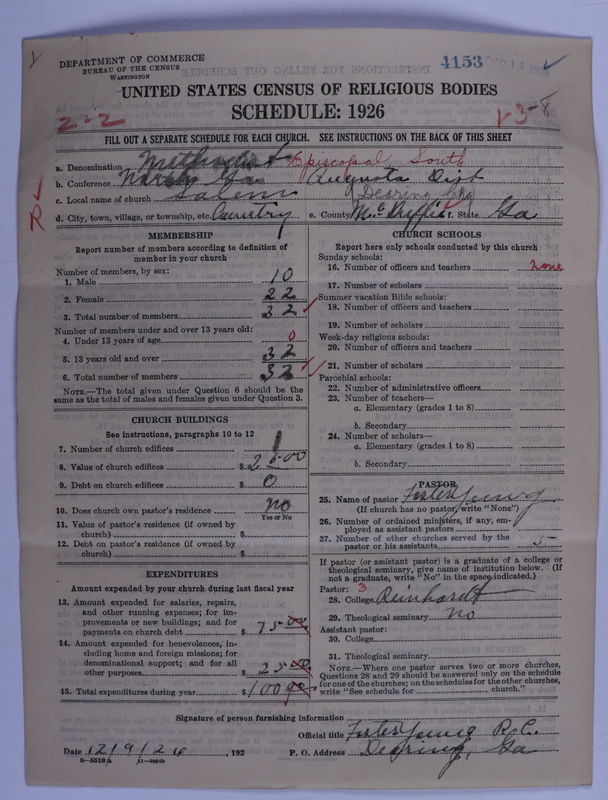 DEPARTMENT OF COMMERCE
BUREAU OF THE CENSUS
WASHINGTON
4153
UNITED STATES CENSUS OF RELIGIOUS BODIES
SCHEDULE: 1926
2-2
FILL OUT A SEPARATE SCHEDULE FOR EACH CHURCH. SEE INSTRUCTIONS ON THE BACK OF THIS SHEET
a. Denomination Methodist Episcopal South
b. Conference North Ga Augusta Dist
c. Local name of church Salem Dearing Chg
d. City, town, village, or township, etc. Country e. County McDuffie f. State Ga
MEMBERSHIP
Report number of members according to definition of member in your church
Number of members, by sex:
1. Male 10
2. Female 22
3. Total number of members 32
Number of members under and over 13 years old:
4. Under 13 years of age 0
5. 13 years old and over 32
6. Total number of members 32
NOTE.—The total given under Question 6 should be the same as the total of males and females given under Question 3.
CHURCH BUILDINGS
See instructions, paragraphs 10 to 12
7. Number of church edifices 1
8. Value of church edifices $
9. Debt on church edifices $ 0
10. Does church own pastor's residence no
Yes or No
11. Value of pastor's residence (if owned by church) $
12. Debt on pastor's residence (if owned by church) $
EXPENDITURES
Amount expended by your church during last fiscal year
13. Amount expended for salaries, repairs, and other running expenses; for improvements or new buildings; and for payments on church debt $ 75 00
14. Amount expended for benevolences, including home and foreign missions; for denominational support; and for all other purposes $ 25 00
15. Total expenditures during year $ 100 00
CHURCH SCHOOLS
Report here only schools conducted by this church
Sunday schools:
16. Number of officers and teachers none
17. Number of scholars
Summer vacation Bible schools:
18. Number of officers and teachers
19. Number of scholars
Week-day religious schools:
20. Number of officers and teachers
21. Number of scholars
Parochial schools:
22. Number of administrative officers
23. Number of teachers—
a. Elementary (grades 1 to 8)
b. Secondary
24. Number of scholars—
a. Elementary (grades 1 to 8)
b. Secondary
PASTOR
25. Name of pastor Foster Young
(If church has no pastor, write "None")
26. Number of ordained ministers, if any, employed as assistant pastors
27. Number of other churches served by the pastor or his assistants 5
If pastor (or assistant pastor) is a graduate of a college or theological seminary, give name of institution below. (If not a graduate, write "No" in the space indicated.)
Pastor: 3
28. College Reinhardt
29. Theological seminary No
Assistant pastor:
30. College
31. Theological seminary
NOTE.—Where one pastor serves two or more churches, Questions 28 and 29 should be answered only on the schedule for one of the churches; on the schedules for the other churches, write "See schedule for church."
Signature of person furnishing information
Foster Young P.C.
Official title
Date 12/9/26, 192 P. O. Address Dearing, Ga